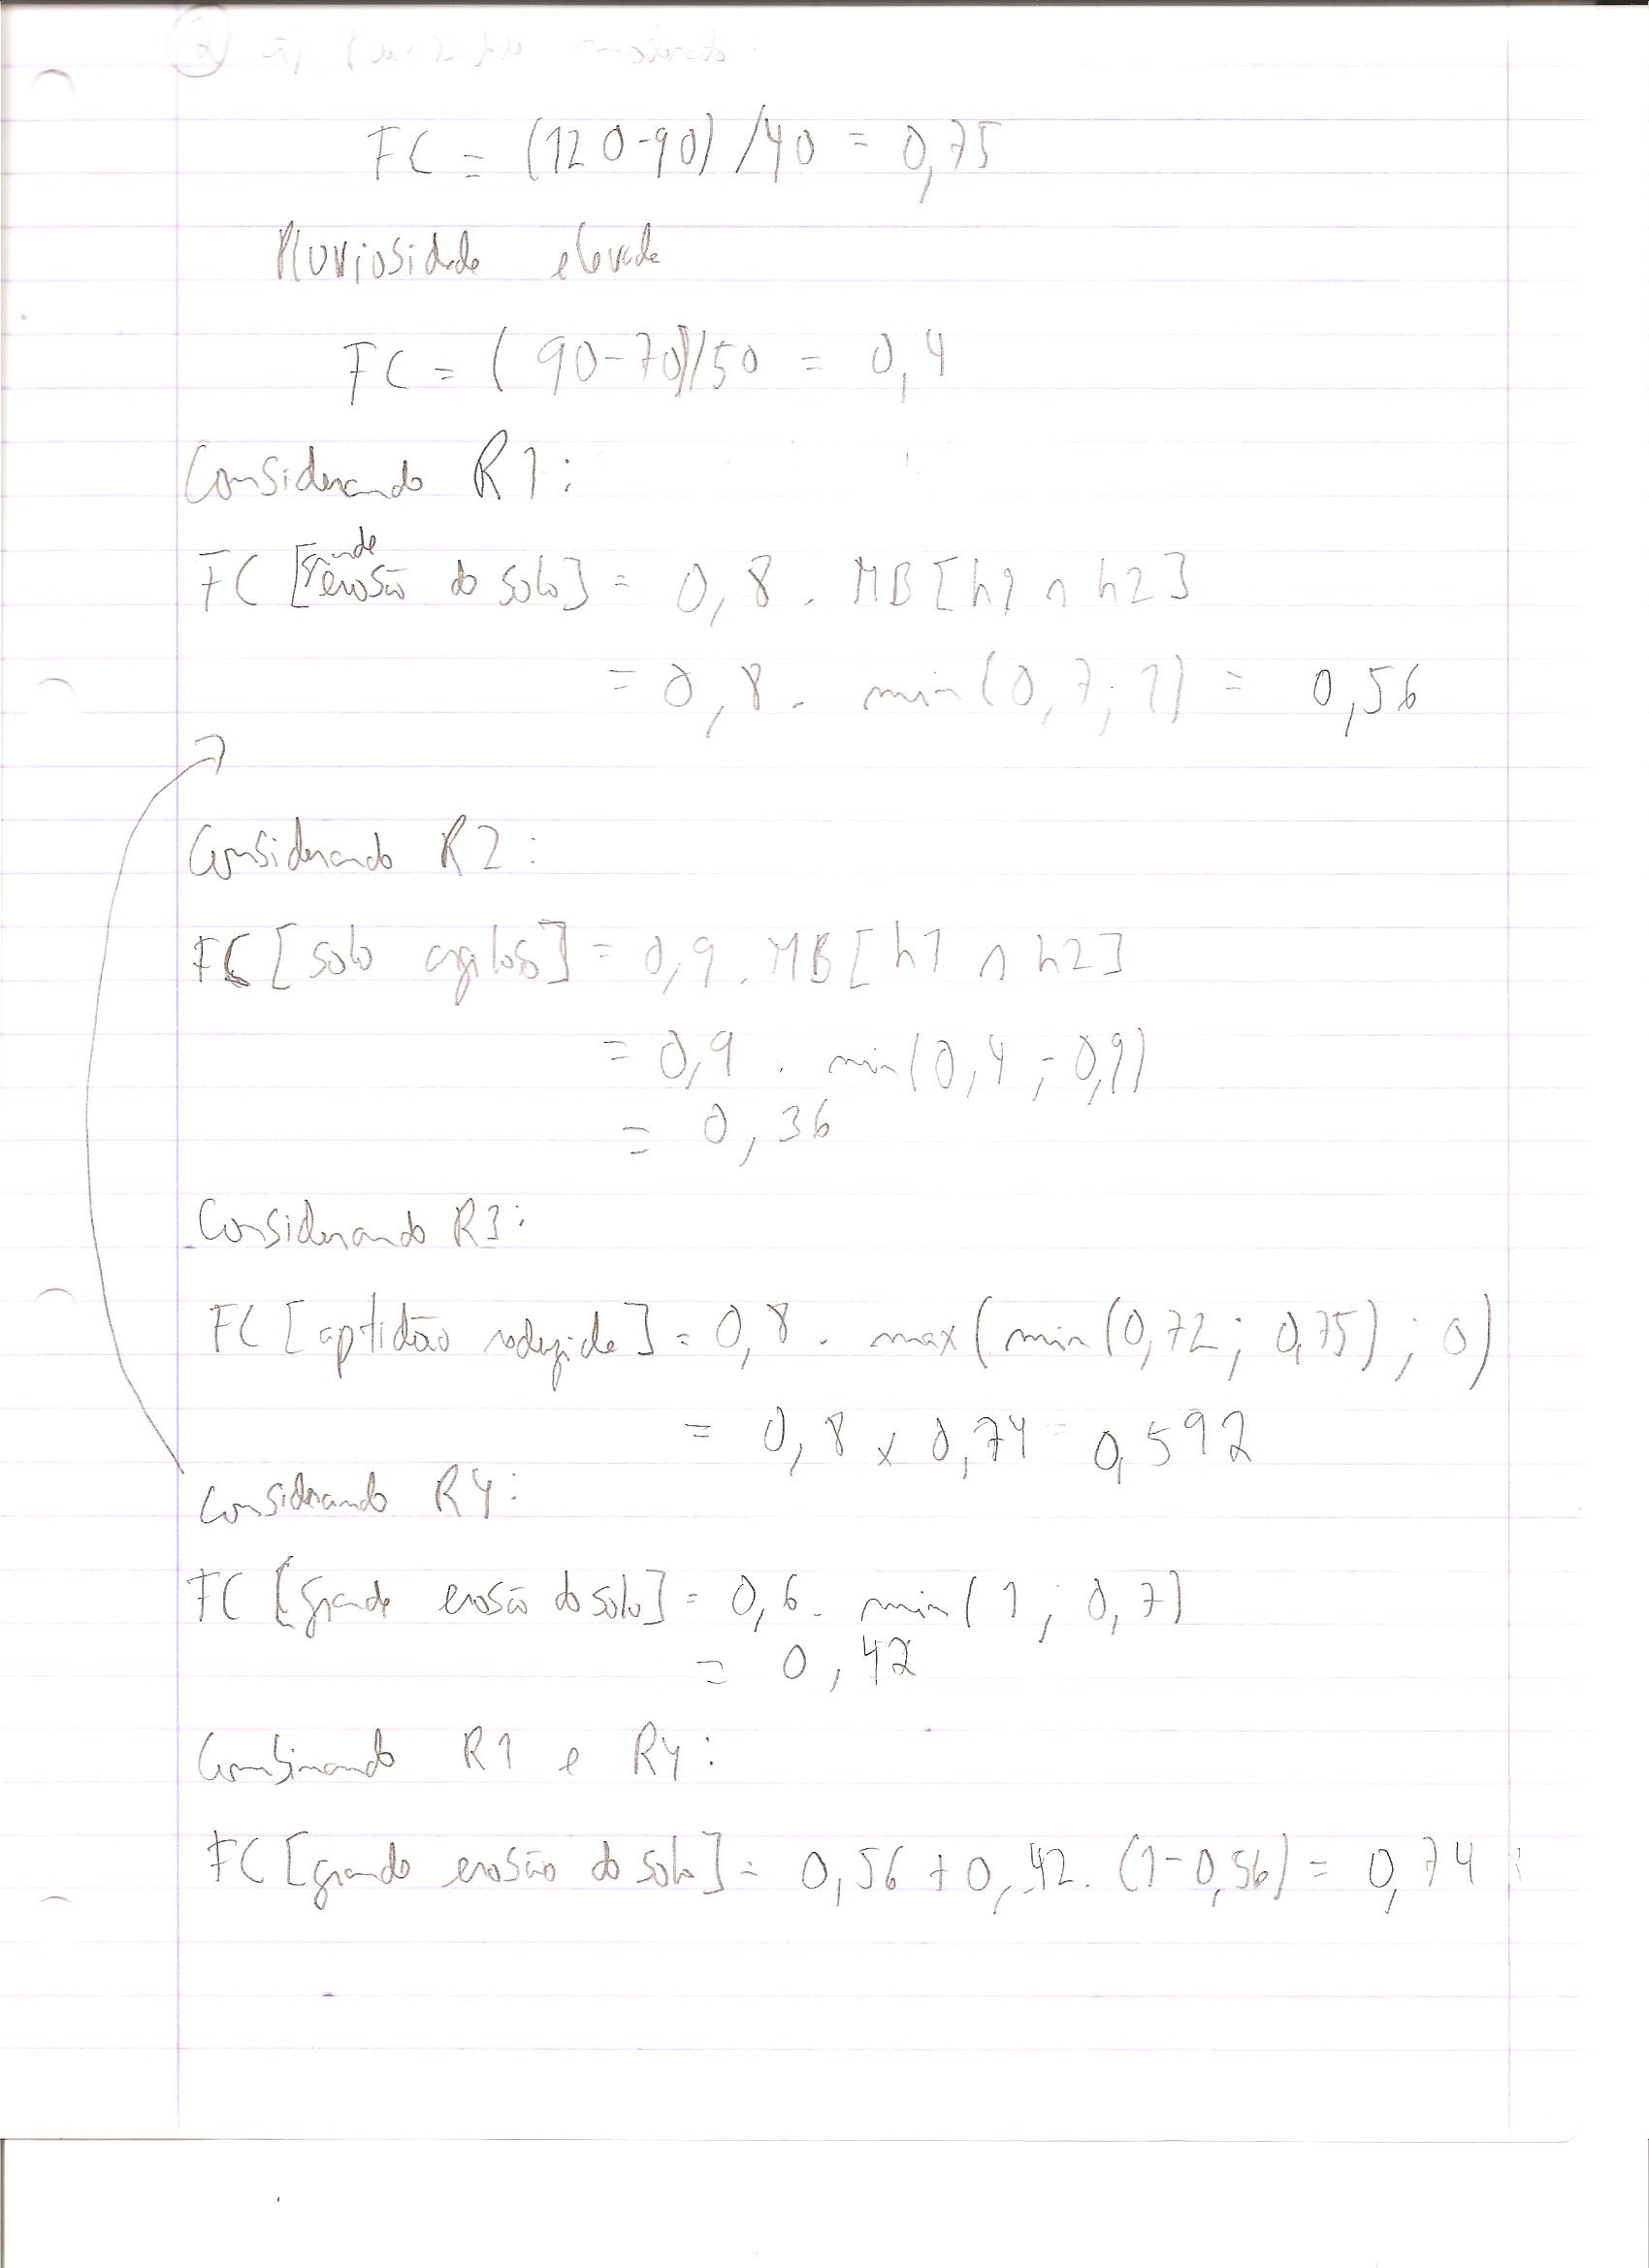 ② a) Pluviosidade moderada:
FC = (120-90)/40 = 0,75
Pluviosidade elevada
FC = (90-70)/50 = 0,4
Considerando R1:
FC [grande erosão do solo] = 0,8 . MB[h1 ∩ h2]
= 0,8 . min(0,7; 1) = 0,56
Considerando R2:
FC [solo argiloso] = 0,9 . MB[h1 ∩ h2]
= 0,9 . min(0,4; 0,9)
= 0,36
Considerando R3:
FC [aptidão reduzida] = 0,8 . max(min(0,72; 0,75); 0)
= 0,8 x 0,74 = 0,592
Considerando R4:
FC [grande erosão do solo] = 0,6 . min(1; 0,7)
= 0,42
Combinando R1 e R4:
FC [grande erosão do solo] = 0,56 + 0,42 . (1-0,56) = 0,74